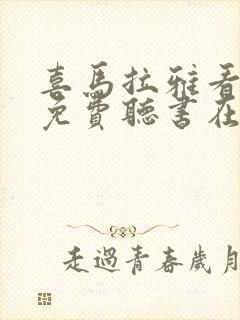 喜馬拉雅看
免費聽書在
走過青春歲月